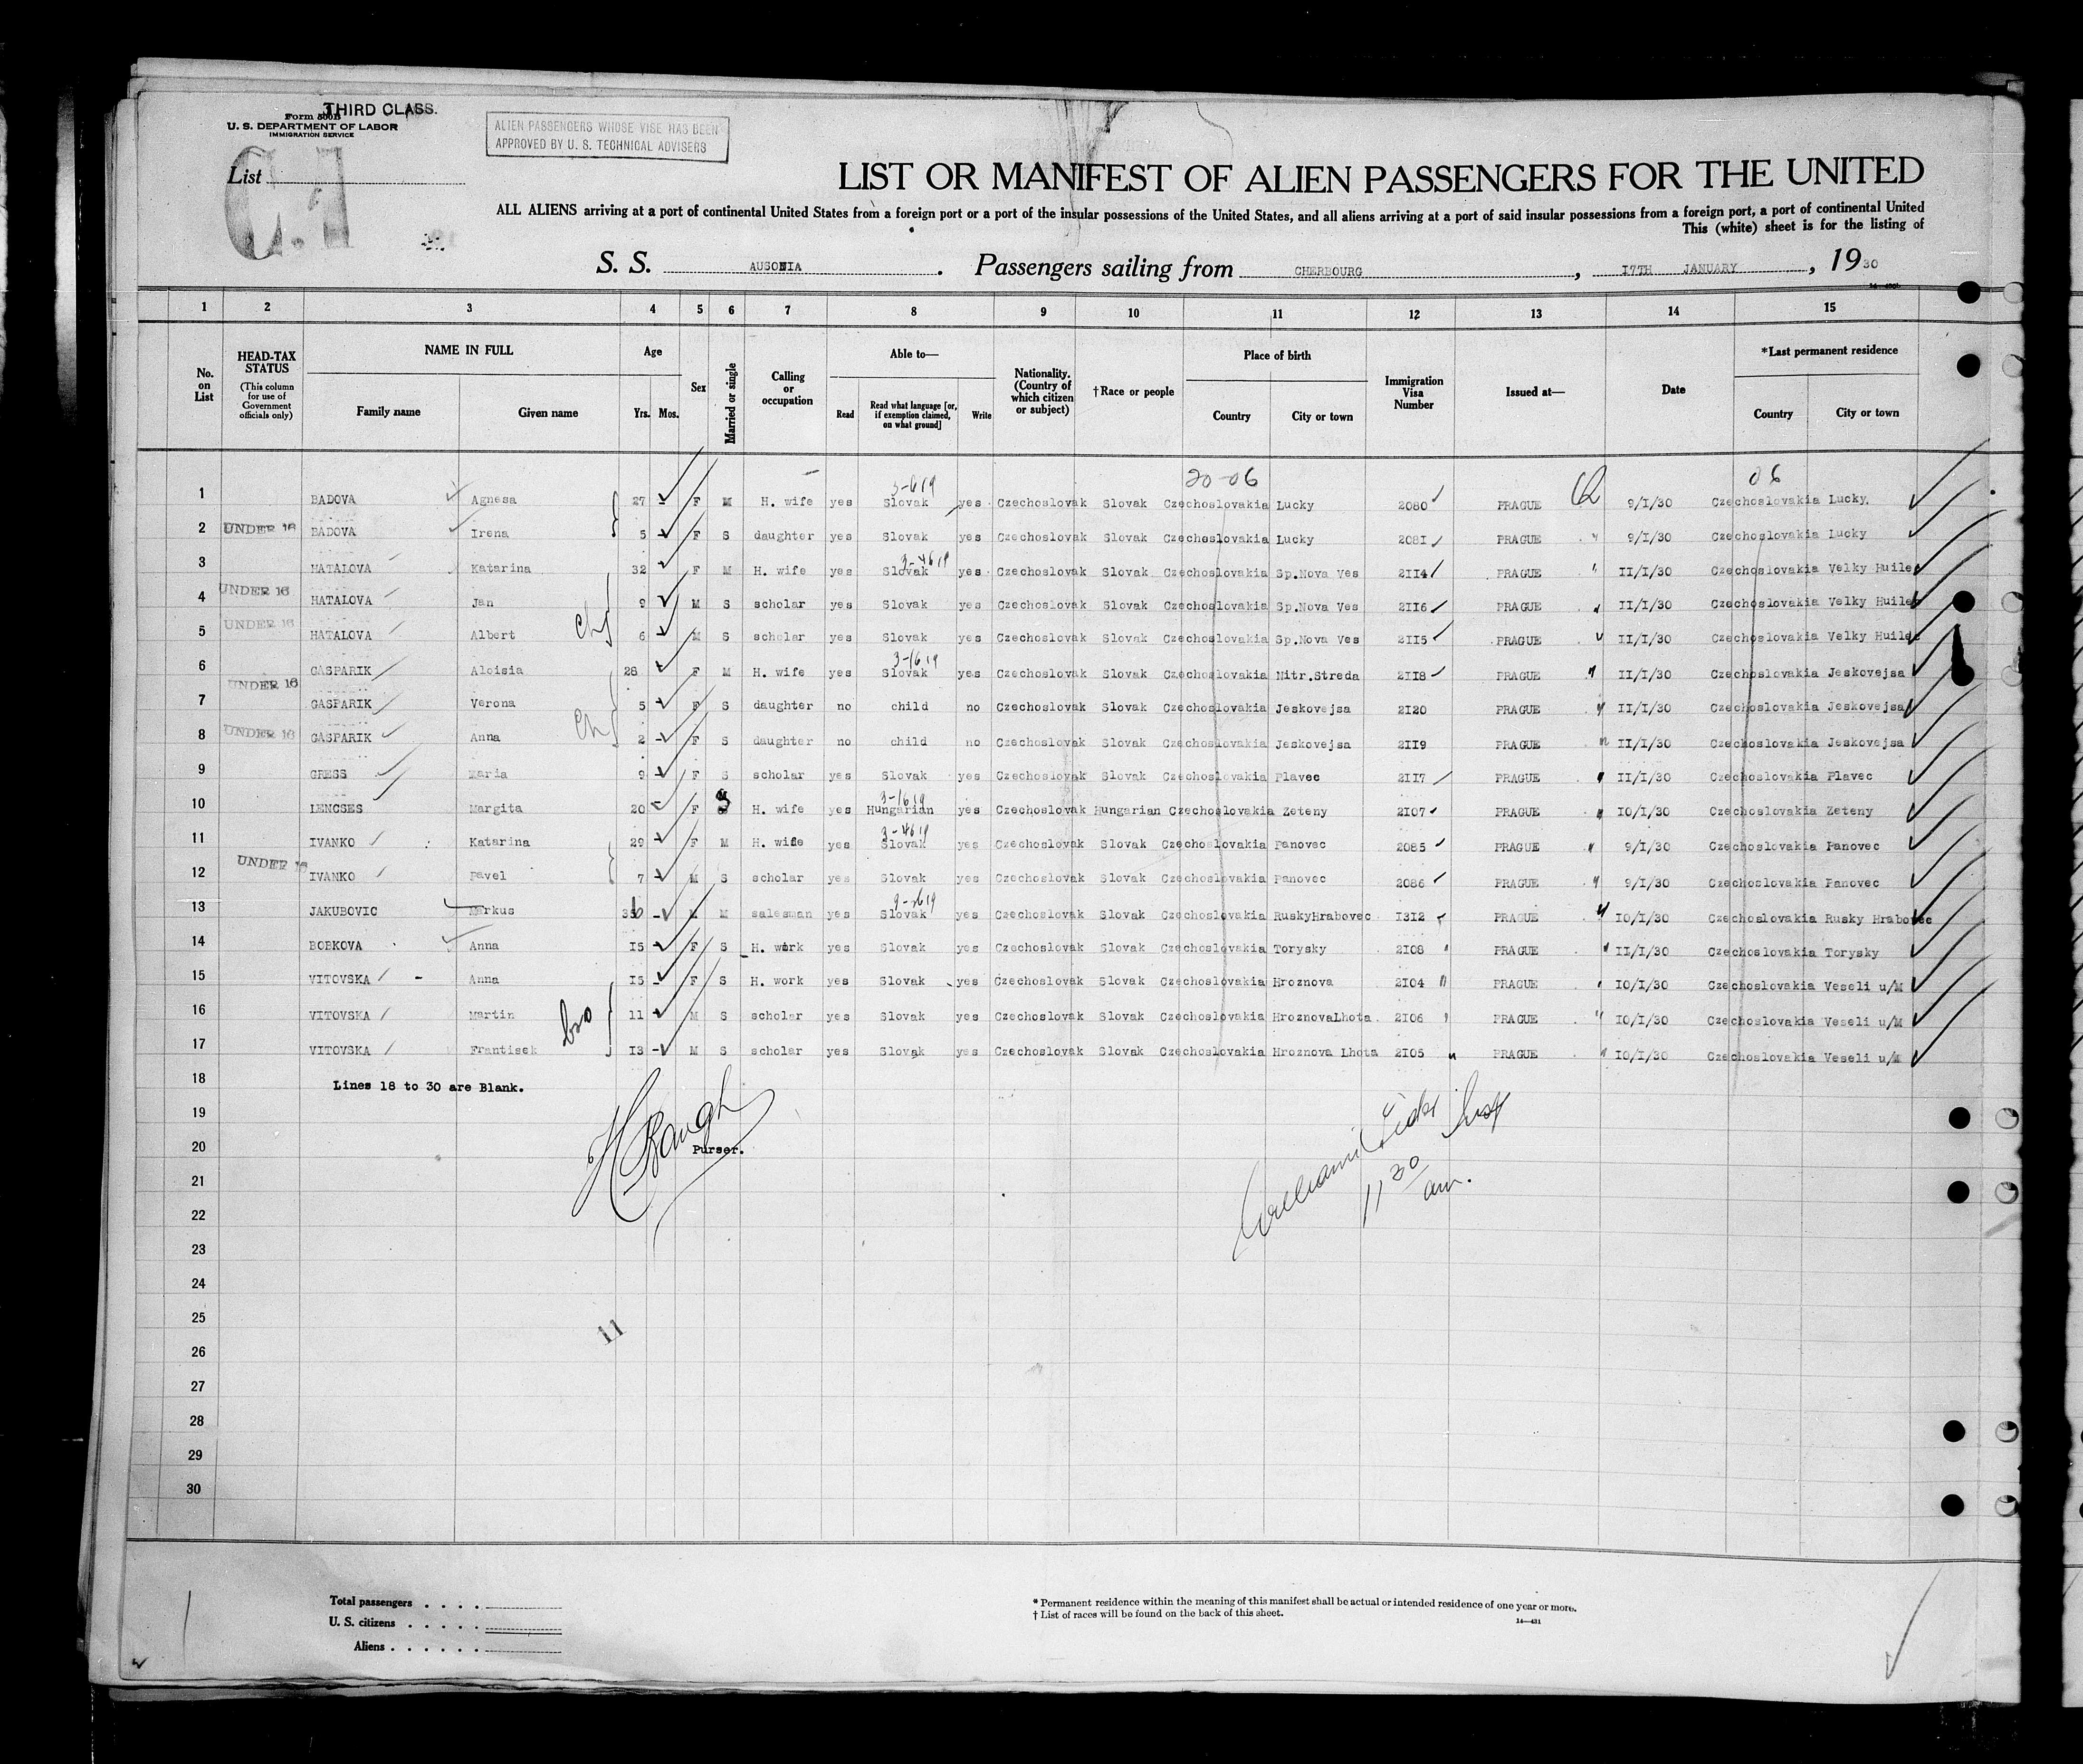 THIRD CLASS.
Form 500B
U. S. DEPARTMENT OF LABOR
IMMIGRATION SERVICE
ALIEN PASSENGERS WHOSE VISE HAS BEEN
APPROVED BY U. S. TECHNICAL ADVISERS
List
LIST OR MANIFEST OF ALIEN PASSENGERS FOR THE UNITED
ALL ALIENS arriving at a port of continental United States from a foreign port or a port of the insular possessions of the United States, and all aliens arriving at a port of said insular possessions from a foreign port, a port of continental United
This (white) sheet is for the listing of
S. S. AUSONIA . Passengers sailing from CHERBOURG , 17TH JANUARY , 1930
1 2 3 4 5 6 7 8 9 10 11 12 13 14 15
No. on List
HEAD-TAX STATUS (This column for use of Government officials only)
NAME IN FULL
Family name Given name
Age
Yrs. Mos.
Sex
Married or single
Calling or occupation
Able to—
Read Read what language [or, if exemption claimed, on what ground] Write
Nationality. (Country of which citizen or subject)
†Race or people
Place of birth
Country City or town
Immigration Visa Number
Issued at—
Date
*Last permanent residence
Country City or town
20-06 06
1 BADOVA Agnesa 27 - F M H. wife yes Slovak yes Czechoslovak Slovak Czechoslovakia Lucky 2080 PRAGUE 9/I/30 Czechoslovakia Lucky.
2 UNDER 16 BADOVA Irena 5 - F S daughter yes Slovak yes Czechoslovak Slovak Czechoslovakia Lucky 2081 PRAGUE 9/I/30 Czechoslovakia Lucky
3 HATALOVA Katarina 32 F M H. wife yes Slovak yes Czechoslovak Slovak Czechoslovakia Sp.Nova Ves 2114 PRAGUE II/I/30 Czechoslovakia Velky Huilec
4 UNDER 16 HATALOVA Jan 9 M S scholar yes Slovak yes Czechoslovak Slovak Czechoslovakia Sp.Nova Ves 2116 PRAGUE II/I/30 Czechoslovakia Velky Huilec
5 UNDER 16 HATALOVA Albert 6 M S scholar yes Slovak yes Czechoslovak Slovak Czechoslovakia Sp.Nova Ves 2115 PRAGUE II/I/30 Czechoslovakia Velky Huilec
6 GASPARIK Aloisia 28 F M H. wife yes Slovak yes Czechoslovak Slovak Czechoslovakia Nitr.Streda 2118 PRAGUE II/I/30 Czechoslovakia Jeskovejsa
7 UNDER 16 GASPARIK Verona 5 - F S daughter no child no Czechoslovak Slovak Czechoslovakia Jeskovejsa 2120 PRAGUE II/I/30 Czechoslovakia Jeskovejsa
8 UNDER 16 GASPARIK Anna 2 - F S daughter no child no Czechoslovak Slovak Czechoslovakia Jeskovejsa 2119 PRAGUE II/I/30 Czechoslovakia Jeskovejsa
9 GRESS Maria 9 - F S scholar yes Slovak yes Czechoslovak Slovak Czechoslovakia Plavec 2117 PRAGUE II/I/30 Czechoslovakia Plavec
10 LENCSES Margita 20 - F S H. wife yes Hungarian yes Czechoslovak Hungarian Czechoslovakia Zeteny 2107 PRAGUE IO/I/30 Czechoslovakia Zeteny
11 IVANKO Katarina 29 - F M H. wife yes Slovak yes Czechoslovak Slovak Czechoslovakia Panovec 2085 PRAGUE 9/I/30 Czechoslovakia Panovec
12 UNDER 16 IVANKO Pavel 7 - M S scholar yes Slovak yes Czechoslovak Slovak Czechoslovakia Panovec 2086 PRAGUE 9/I/30 Czechoslovakia Panovec
13 JAKUBOVIC Markus 36 - M M salesman yes Slovak yes Czechoslovak Slovak Czechoslovakia RuskyHrabovec I3I2 PRAGUE IO/I/30 Czechoslovakia Rusky Hrabovec
14 BOBKOVA Anna I5 - F S H. work yes Slovak yes Czechoslovak Slovak Czechoslovakia Torysky 2108 PRAGUE II/I/30 Czechoslovakia Torysky
15 VITOVSKA - Anna I5 - F S H. work yes Slovak yes Czechoslovak Slovak Czechoslovakia Hroznova 2104 PRAGUE IO/I/30 Czechoslovakia Veseli u/M
16 VITOVSKA Martin 11 M S scholar yes Slovak yes Czechoslovak Slovak Czechoslovakia HroznovaLhota 2106 PRAGUE IO/I/30 Czechoslovakia Veseli u/M
17 VITOVSKA Frantisek I3 - M S scholar yes Slovak yes Czechoslovak Slovak Czechoslovakia Hroznova Lhota 2105 PRAGUE IO/I/30 Czechoslovakia Veseli u/M
18 Lines 18 to 30 are Blank.
19
20 Purser.
21
22
23
24
25
11
26
27
28
29
30
11 30 am.
Total passengers
U. S. citizens
Aliens
* Permanent residence within the meaning of this manifest shall be actual or intended residence of one year or more.
† List of races will be found on the back of this sheet.
14—431